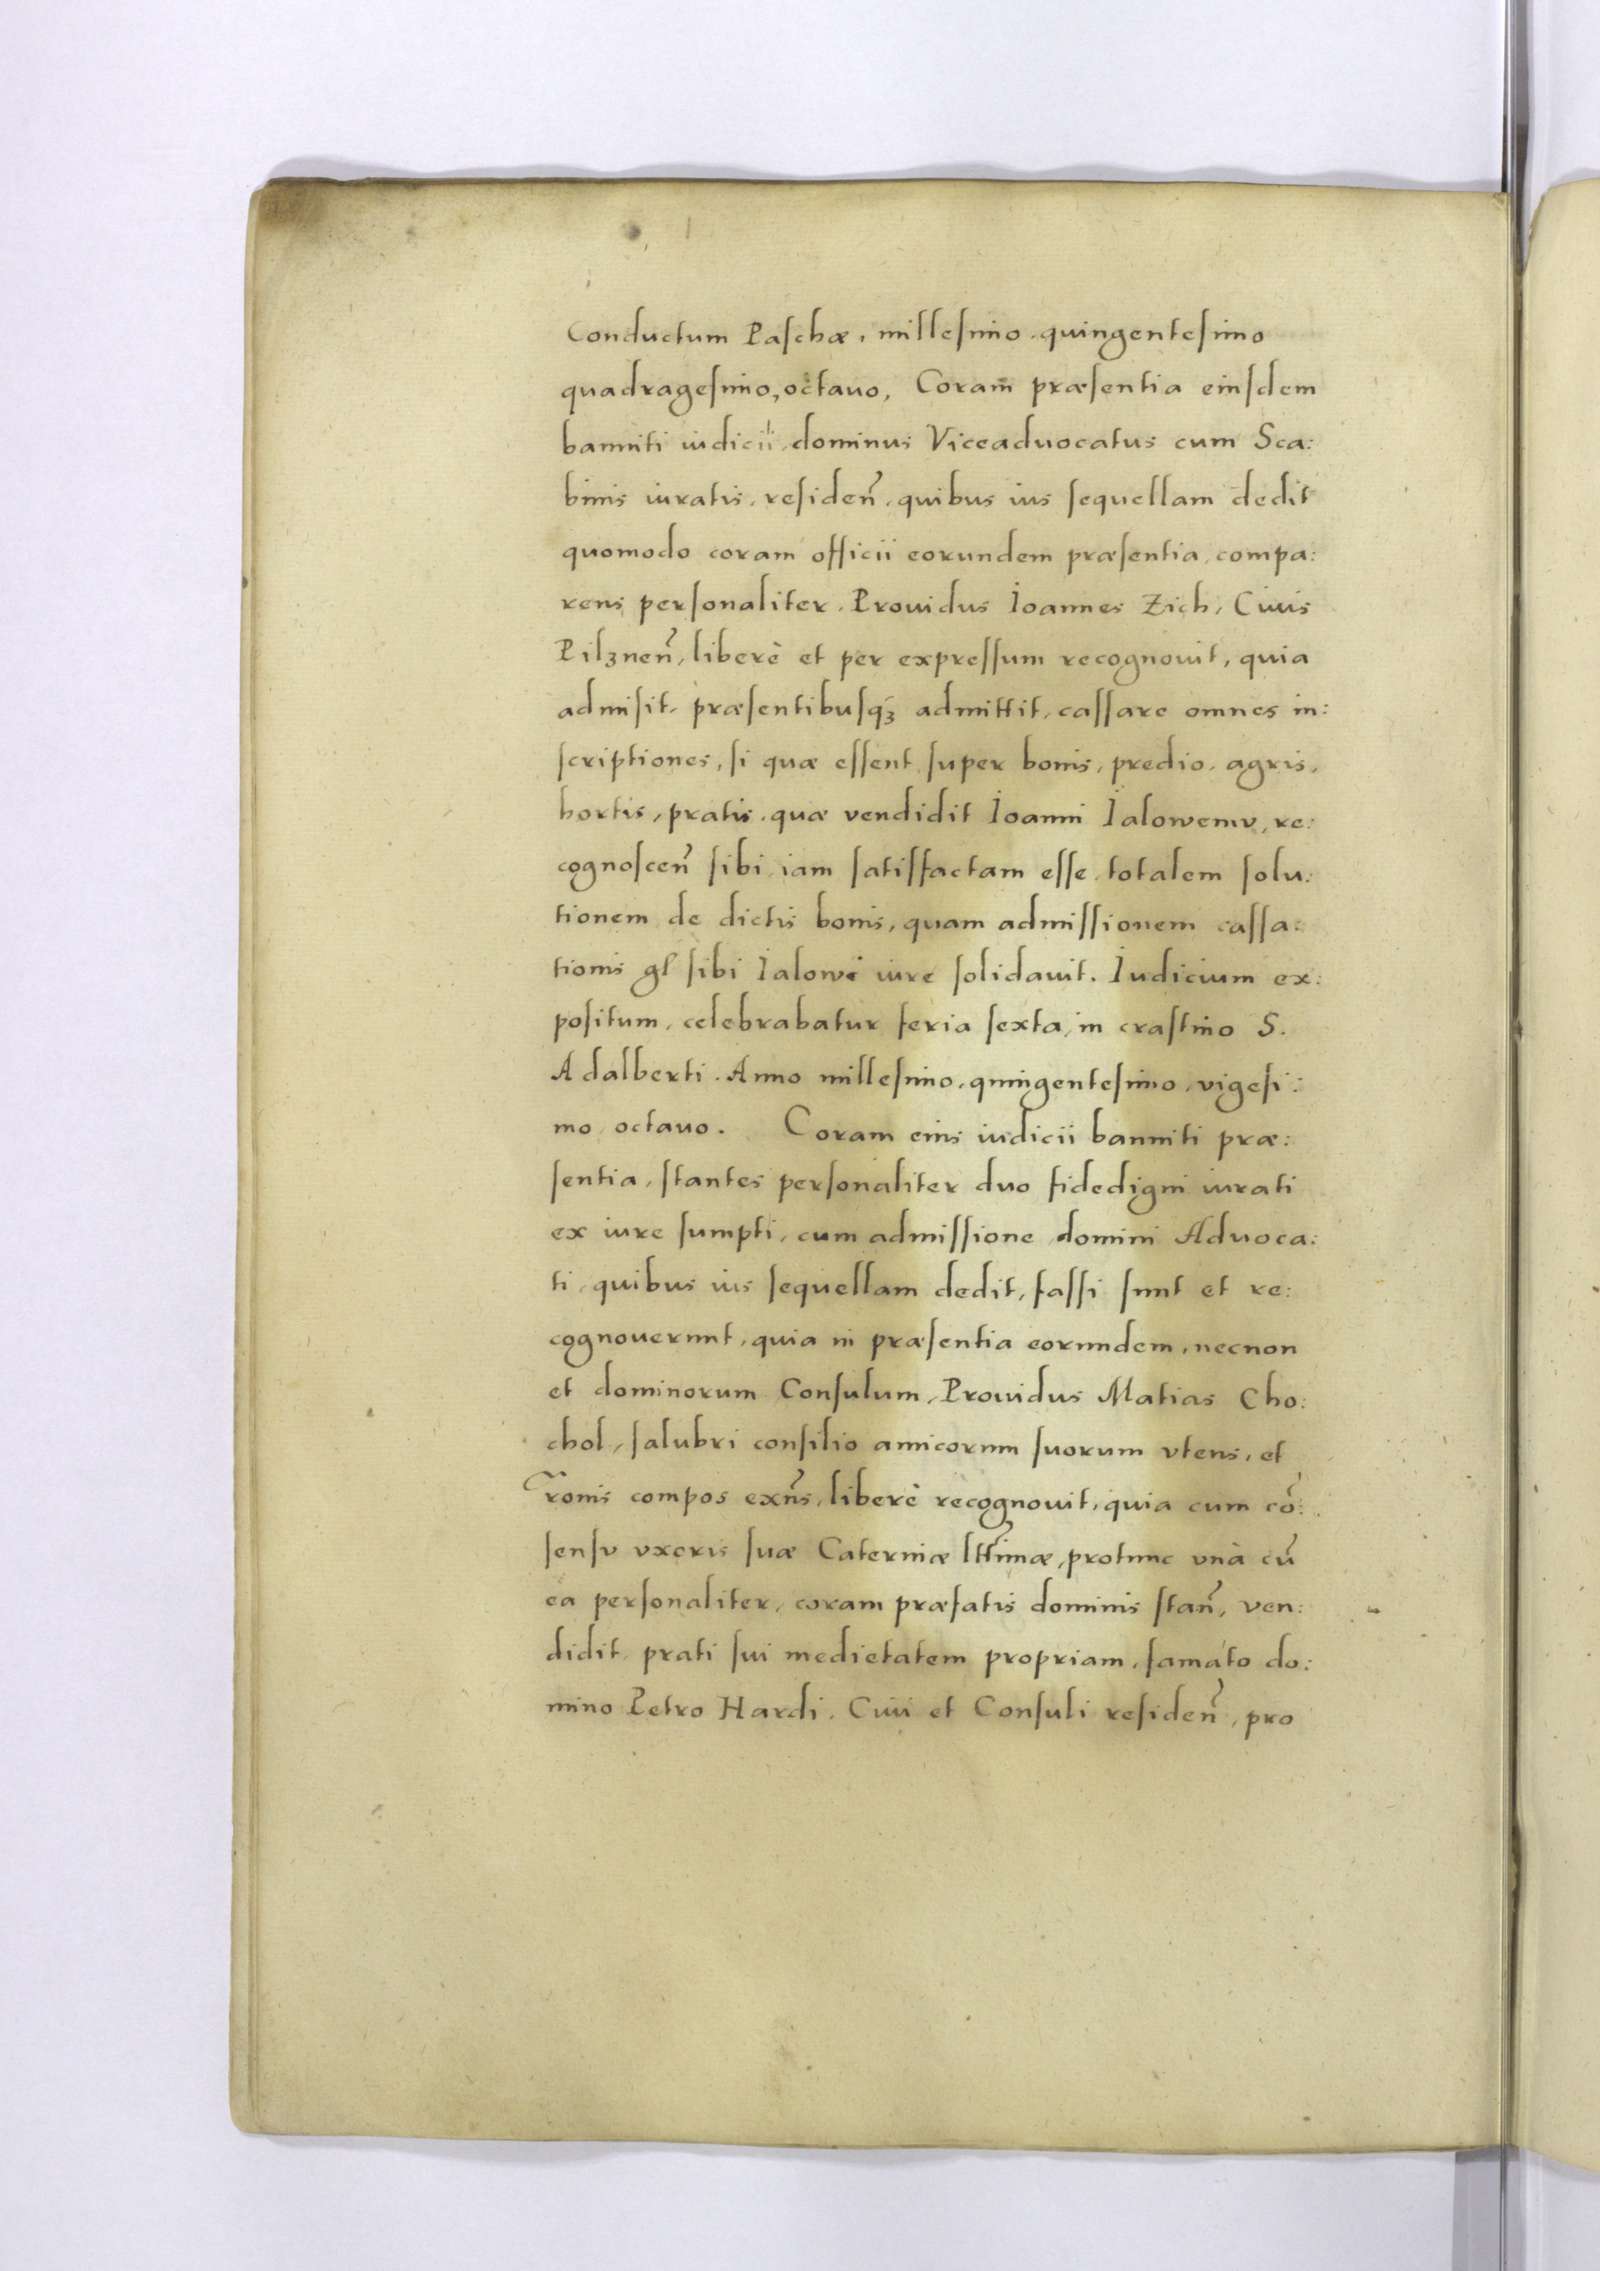 Conductum Paschæ, millesimo quingentesimo
quadragesimo, octauo, Coram præsentia eiusdem
banniti iudicii, dominus Viceaduocatus cum Sca:
binis iuratis, residen̄, quibus ius sequellam dedit
quomodo coram officii eorundem præsentia, compa:
rens personaliter, Prouidus Ioannes Zich, Ciuis
Pilznen̄, liberè et per expressum recognouit, quia
admisit, præsentibusqꝫ admittit, cassare omnes in:
scriptiones, si quæ essent super bonis, predio, agris,
hortis, pratis, quæ vendidit Ioanni Ialowemv, re:
cognoscen̄ sibi iam satisfactam esse totalem solu:
tionem de dictis bonis, quam admissionem cassa:
tionis gl sibi Ialowi iure solidauit. Iudicium ex:
positum, celebrabatur feria sexta, in crastino S.
Adalberti. Anno millesimo, quingentesimo, vigesi:
mo octauo. Coram eius iudicii banniti præ:
sentia, stantes personaliter duo fidedigni iurati
ex iure sumpti, cum admissione domini Aduoca:
ti, quibus ius sequellam dedit, fassi sunt et re:
cognouerunt, quia in præsentia eorundem, necnon
et dominorum Consulum, Prouidus Matias Cho:
chol, salubri consilio amicorum suorum vtens, et
ronis compos exn̄s, liberè recognouit, quia cum cō:
sensv vxoris suæ Caterinæ lt̄timæ, protunc vnà cū
ea personaliter, coram præfatis dominis stan̄, ven:
didit prati sui medietatem propriam, famato do:
mino Petro Hardi, Ciui et Consuli residen̄, pro